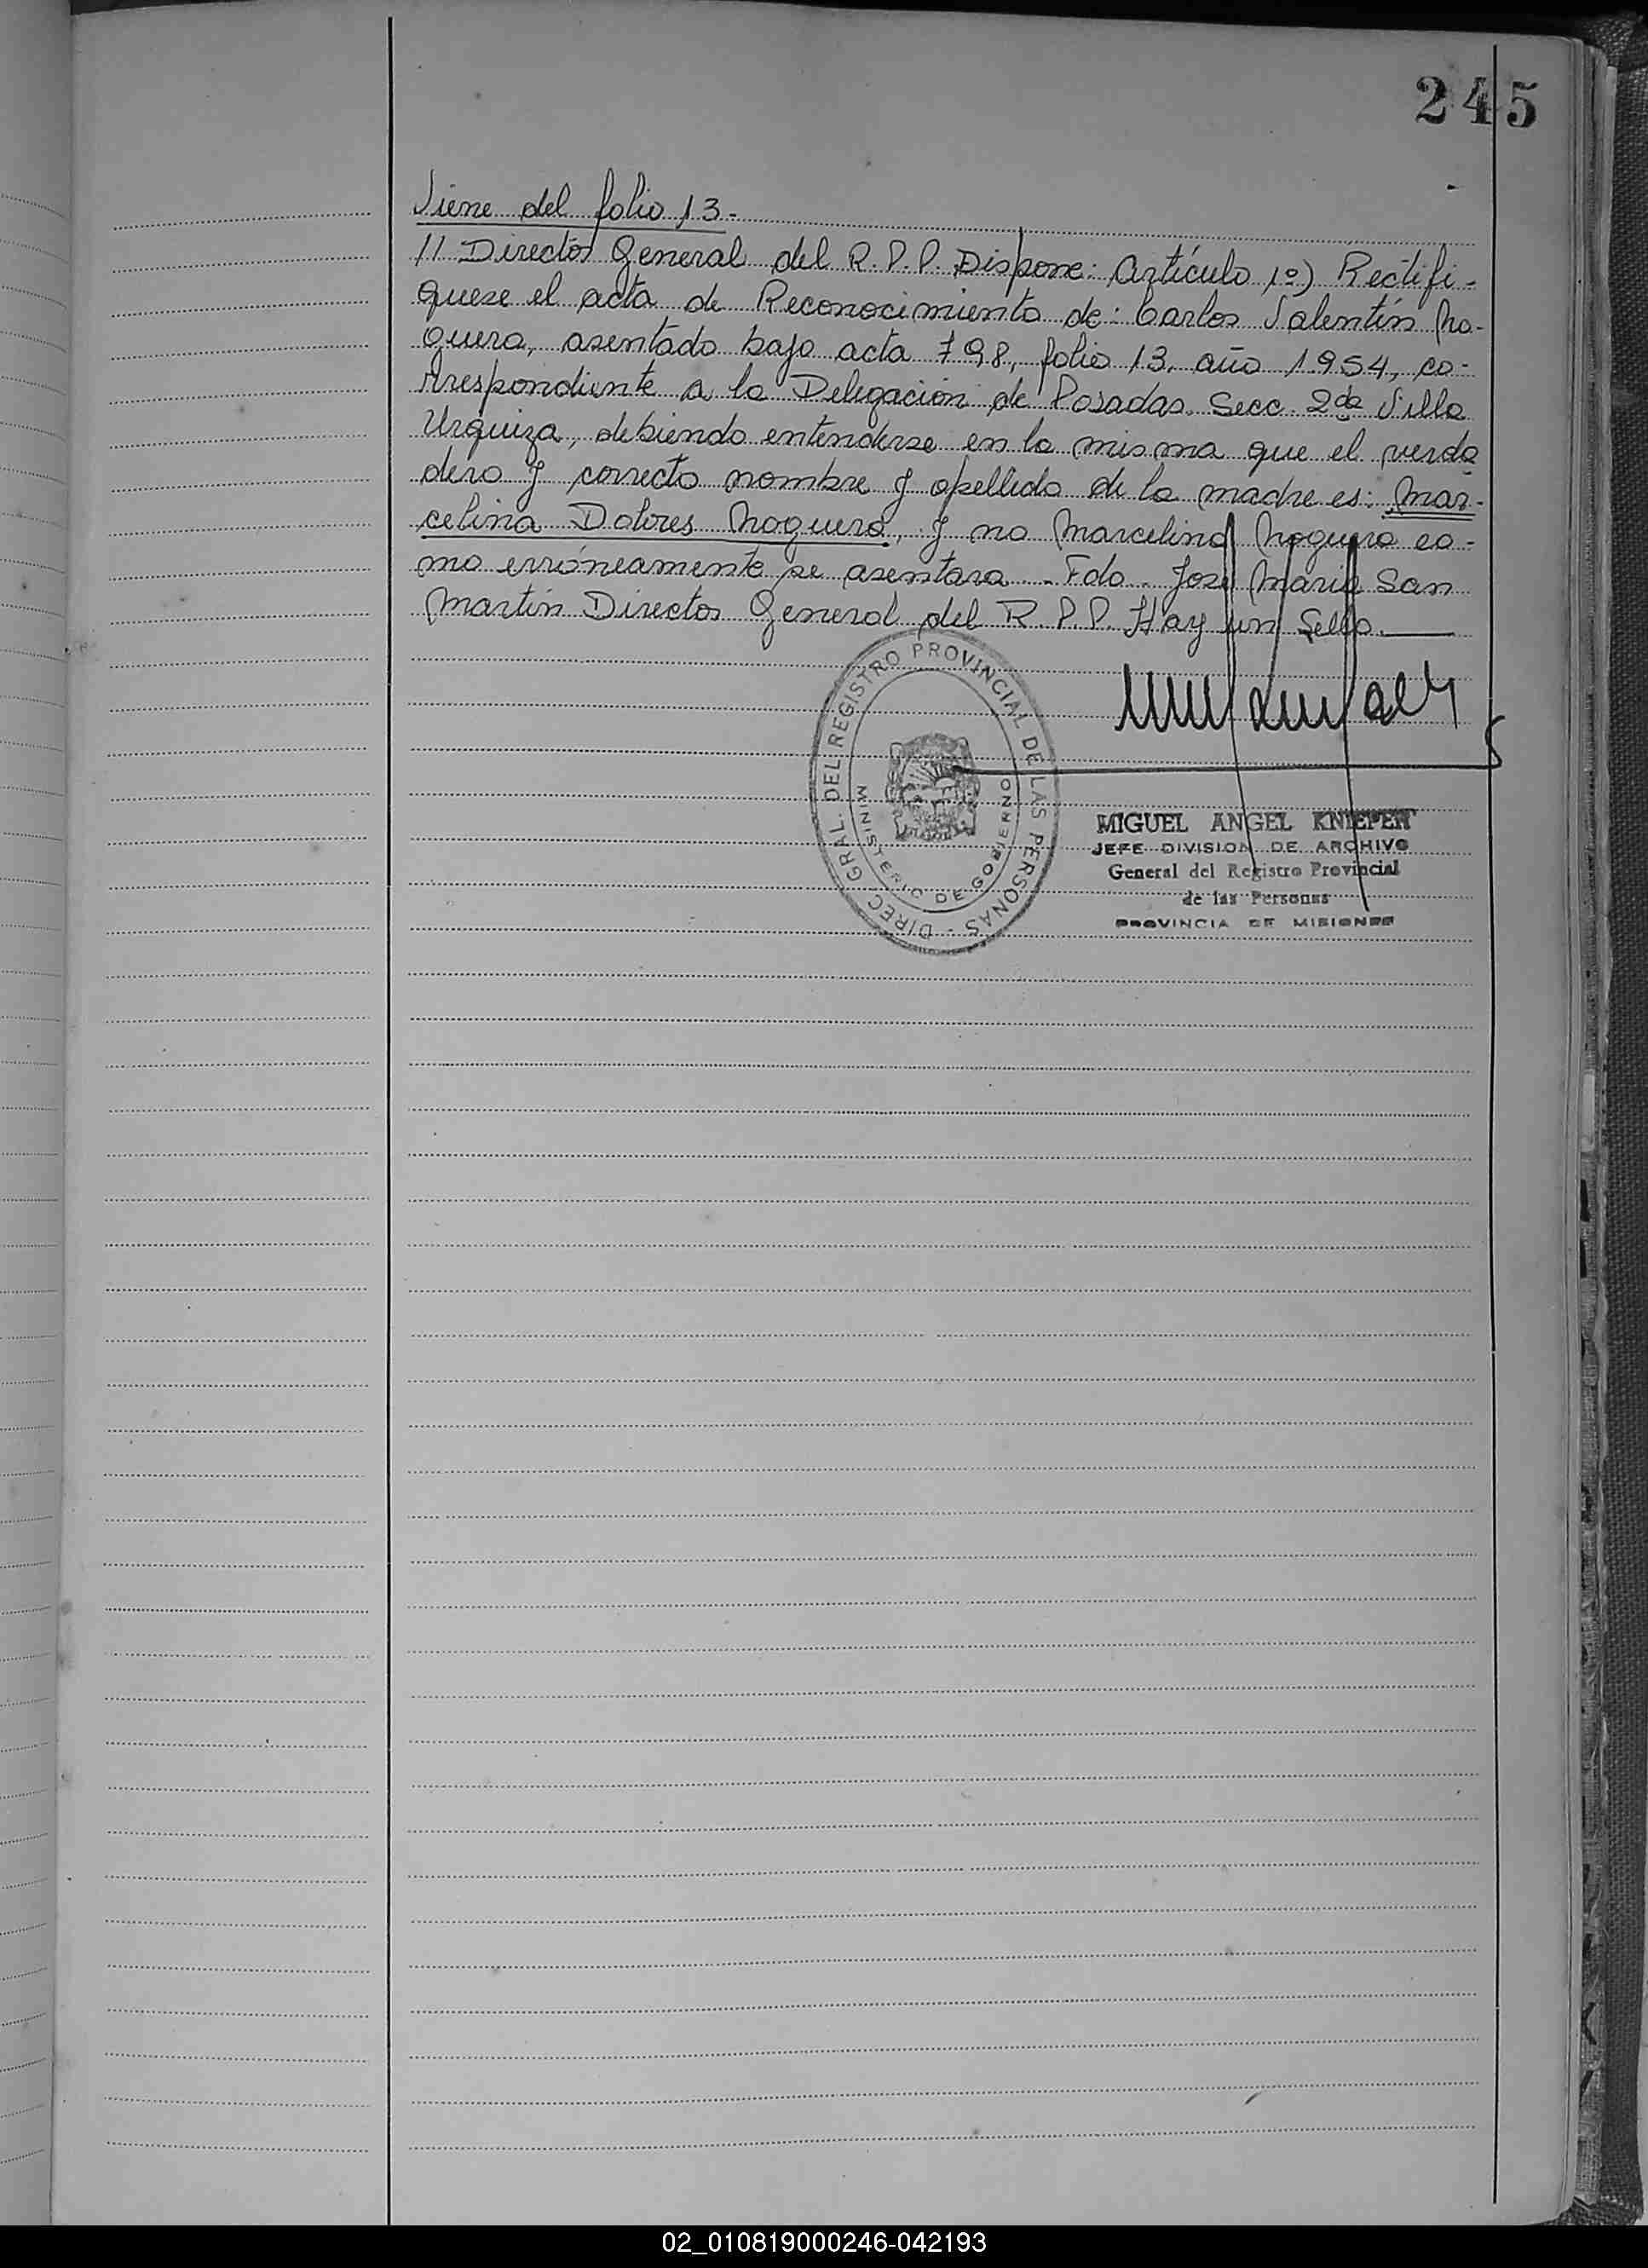 245
Viene del folio 13.-
// Director General del R.P.P. Dispone: Artículo 1º) Rectifi-
quese el acta de Reconocimiento de: Carlos Valentín No-
guera, asentado bajo acta 798, folio 13, año 1.954, co-
rrespondiente a la Delegación de Posadas Secc. 2da Villa
Urquiza, debiendo entenderse en la misma que el verda
dero y correcto nombre y apellido de la madre es: Mar-
celina Dolores Noguera, y no Marcelina Noguera co-
mo erróneamente se asentara.- Fdo. José Maria San
Martín Director General del R.P.P. Hay un Sello.
DIREC. GRAL. DEL REGISTRO PROVINCIAL DE LAS PERSONAS -
MINISTERIO DE GOBIERNO
MIGUEL ANGEL
JEFE DIVISION DE ARCHIVO
General del Registro Provincial
de las Personas
PROVINCIA DE MISIONES
02_010819000246-042193